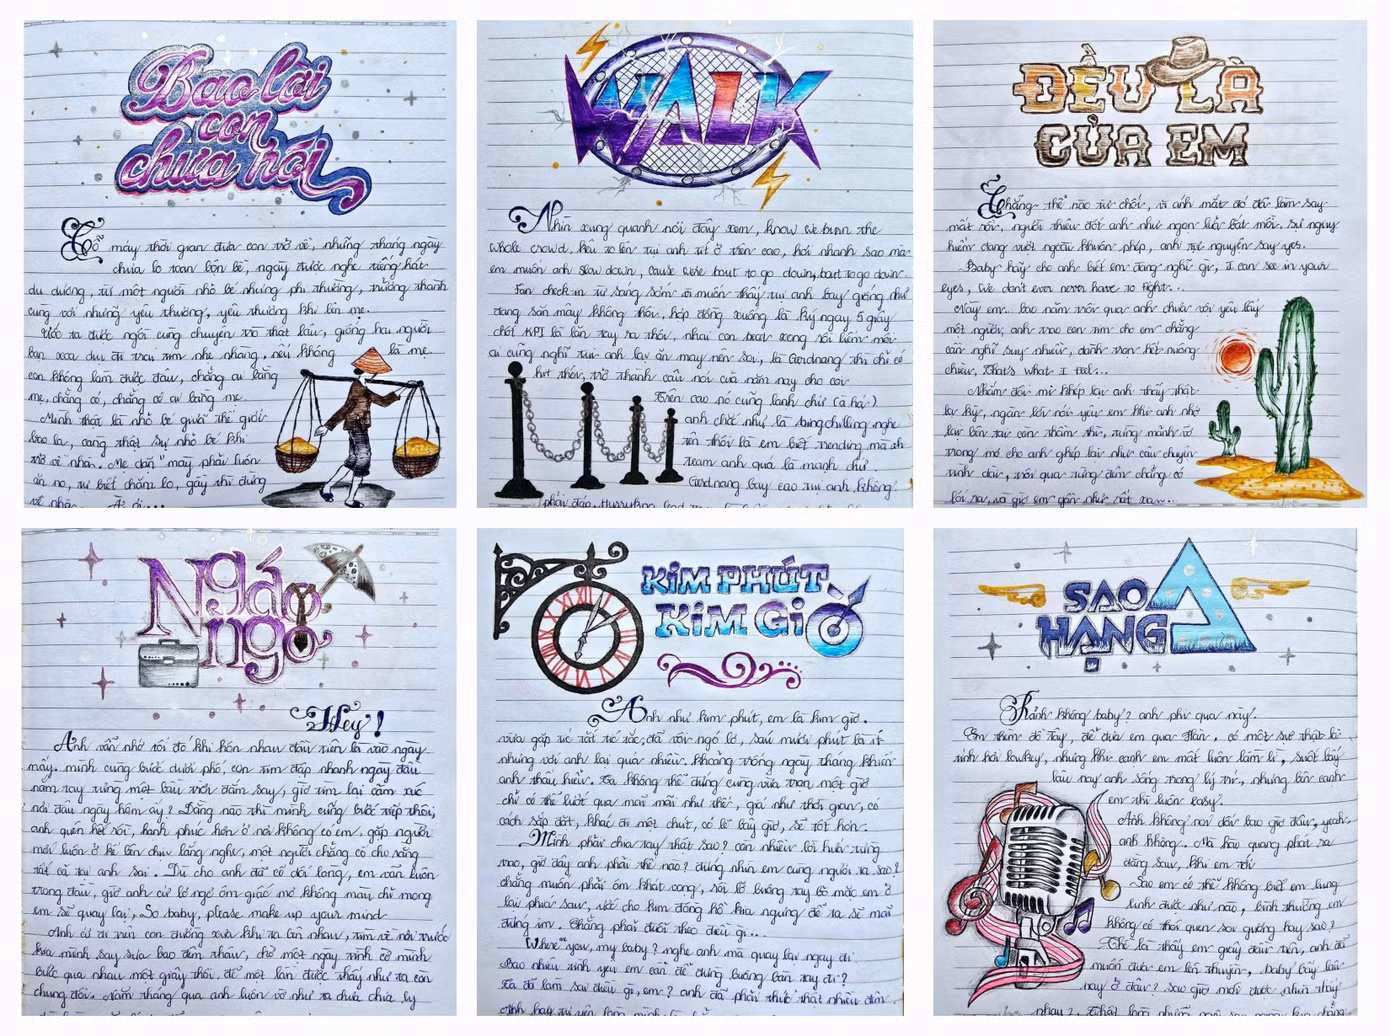 Bao lời
con
chưa nói
Cỗ máy thời gian đưa con trở về, những tháng ngày
chưa lo toan bộn bề, ngày được nghe tiếng hát
du dương, từ một người nhỏ bé nhưng phi thường, trưởng thành
cùng với những yêu thương, yêu thương khi bên mẹ.
Ước ta được ngồi cùng chuyện trò thật lâu, giống hai người
bạn xoa dịu đi trái tim nhẹ nhàng, nếu không là mẹ
con không làm được đâu, chẳng ai bằng
mẹ, chẳng có, chẳng có ai bằng mẹ.
Mình thật là nhỏ bé giữa thế giới
bao la, càng thật sự nhỏ bé khi
trở về nhà. Mẹ dặn "mày phải luôn
ăn no, tự biết chăm lo, gầy thì đừng
về nhà. À ơi...
WALK
Nhìn xung quanh nói đây xem, know we burn the
whole crowd, kêu to lên tụi anh tít ở trên cao, hơi nhanh sao mà
em muốn anh slow down, cause we're bout to go down, bout to go down
Fan check in từ sáng sớm vì muốn thấy tụi anh bay giống như
đang săn mây không thôi, hợp đồng xuống là ký ngay 5 giây
chốt KPI là lần tay ra thôi, nhai con beat xong rồi liếm môi
ai cũng nghĩ tụi anh lại ăn may nên soi, là Gerdnang thì chỉ có
hit thôi, trở thành câu nói của năm nay cho coi
Trên cao nó cũng lạnh chứ (à há)
anh chất như là bingchilling nghe
tên thôi là em biết trending mà ah
team anh quá là mạnh chứ.
Gerdnang bay cao tụi anh không
phải đáp, Hurrykng
ĐỀU LÀ
CỦA EM
Chẳng thể nào từ chối, vì ánh mắt đó đã làm say
mất rồi, người thiêu đốt anh như ngọn lửa bật mồi. Sự nguy
hiểm đang vượt ngoài khuôn phép, anh tự nguyện say yes.
Baby hãy cho anh biết em đang nghĩ gì, I can see in your
eyes, we don't ever never have to fight...
Này em. bao năm trôi qua anh chưa vội yêu lấy
một người, anh trao con tim cho em chẳng
cần nghĩ suy nhiều, đánh tron hết
chiều, That's what I feel...
Nhắm đôi mi khép lại anh thấy thật
lạ kỳ, ngàn lời nói yêu em khi anh nhớ
lại bên tai còn thầm thì, từng mảnh vỡ
trong mơ cho anh ghép lại như câu chuyện
tình dài, trôi qua từng đêm chẳng có
lối ra, và giờ em gần như rất xa...
Ngáo
ngơ
Hey!
Anh vẫn nhớ tối đó khi hôn nhau đầu tiên là vào ngày
mấy. mình cùng bước dưới phố, con tim đập nhanh ngày đầu
nắm tay từng một bầu trời đắm say, giờ tìm lại cảm xúc
nơi đâu ngày hôm ấy? Đằng nào thì mình cũng bước tiếp thôi,
anh quên hết rồi, hạnh phúc hơn ở nơi không có em. gặp người
mới luôn ở kế bên chịu lắng nghe, một người chẳng có cho rằng
tất cả tại anh sai. Dù cho anh đã cố dối lòng, em vẫn luôn
trong đầu, giờ anh cứ lơ ngơ ôm giấc mơ không màu chỉ mong
em sẽ quay lại, So baby, please make up your mind
Anh cứ đi trên con đường xưa khi ta bên nhau, tìm về nơi trước
kia mình say sưa bao đêm thâu, chờ một ngày tình cờ mình
bước qua nhau một giây thôi. để một lần được thấy như ta còn
chung đôi. Năm tháng qua anh luôn vờ như ta chưa chia ly
KIM PHÚT
KIM GIỜ
Anh như kim phút, em là kim giờ.
vừa gặp tíc tắc tíc tắc, đã vội ngó lơ, sáu mươi phút là ít
nhưng với anh lại quá nhiều. khoảng trống ngày tháng khuấn
anh thấu hiểu. Ta không thể đứng cùng vừa tròn một giờ
chỉ có thể lướt qua mãi mãi như thế, giá như thời gian, có
cách sắp đặt, khác đi một chút, có lẽ bây giờ, sẽ tốt hơn.
Mình phải chia tay thật sao? còn nhiều lời hứa từng
trao, giờ đây anh phải thế nào? đứng nhìn em cùng người ta sao?
chẳng muốn phải ôm khát vọng, rồi lỡ buông tay bỏ mặc em ở
lại phía sau, ước cho kim đồng hồ kia ngưng để ta sẽ mãi
đứng im. Chẳng phải đuổi theo điều gì...
Where you, my baby? nghe anh mà quay lại ngay đi
Bao nhiêu tình yêu em cần để đừng buông bàn tay đi?
Ta đã làm sai điều gì, em? anh đã phải thức thật nhiều đêm
SAO
HẠNG
A
Rảnh không baby? anh phi qua này.
Em thèm đồ Tây, để đưa em qua Hàn, có một sự thật là
mình hơi lowkey, nhưng khi cạnh em mắt luôn lầm lì, suốt bấy
lâu nay anh sống trong lý trí, nhưng bên cạnh
em thì luôn easy.
Anh không nói dối bao giờ đâu, yeah.
anh không. Má hào quang phát ra
đằng sau, khi em tới
Sao em có thể không biết em lung
linh được như nào, bình thường em
không có thói quen soi gương hay sao?
Thế là thấy em giây đầu tiên, anh đã
muốn đưa em lên thuyền, baby bấy lâu
nay ở đâu? Sao giờ mới được nhìn thấy
nhau?